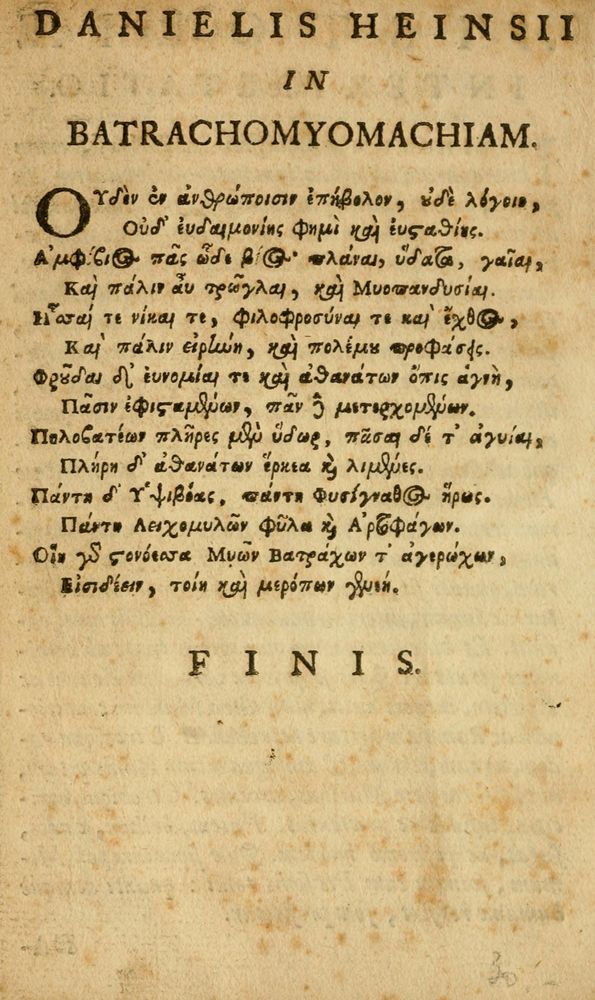 DANIELIS HEINSII
IN
BATRACHOMYOMACHIAM.
ΟΥδὲν ἐν ἀνθρώποισιν ἐπήβολον, ȣδὲ λόγοιο,
Οὐδ' ἐυδαιμονίης φημὶ καὶ ἐυσταθίης.
Ἀμφίβιος πᾶς ὧδε βίος· πλάναι, ὕδατα, γαῖαι,
Καὶ πάλιν αὖ τρῶγλαι, καὶ Μυοπανδυσίαι.
Ἧσσαί τε νίκαι τε, φιλοφροσύναι τε καὶ ἔχθος,
Καὶ πάλιν εἰρήνη, καὶ πολέμȣ προφάσεις.
Φρȣ͂δαι δ' ἐυνομίαι τε καὶ ἀθανάτων ὄπις ἁγνὴ,
Πᾶσιν ἐφισταμένων, πᾶν δὲ μετερχομένων.
πλῆρες μὲν ὕδωρ, πᾶσαι δέ τ' ἀγυίαι,
Πλήρη δ' ἀθανάτων ἕρκεα καὶ λιμένες.
Πάντη δ' Ὑψιβόας, πάντη Φυσίγναθος ἥρως.
Πάντη Λειχομυλῶν φῦλα καὶ Ἀρτοφάγων.
Οἵη γὰρ στονόεσσα Μυῶν Βατράχων τ' ἀγερώχων,
Εἰσιδέειν, τοίη καὶ μερόπων γενεή.
FINIS.